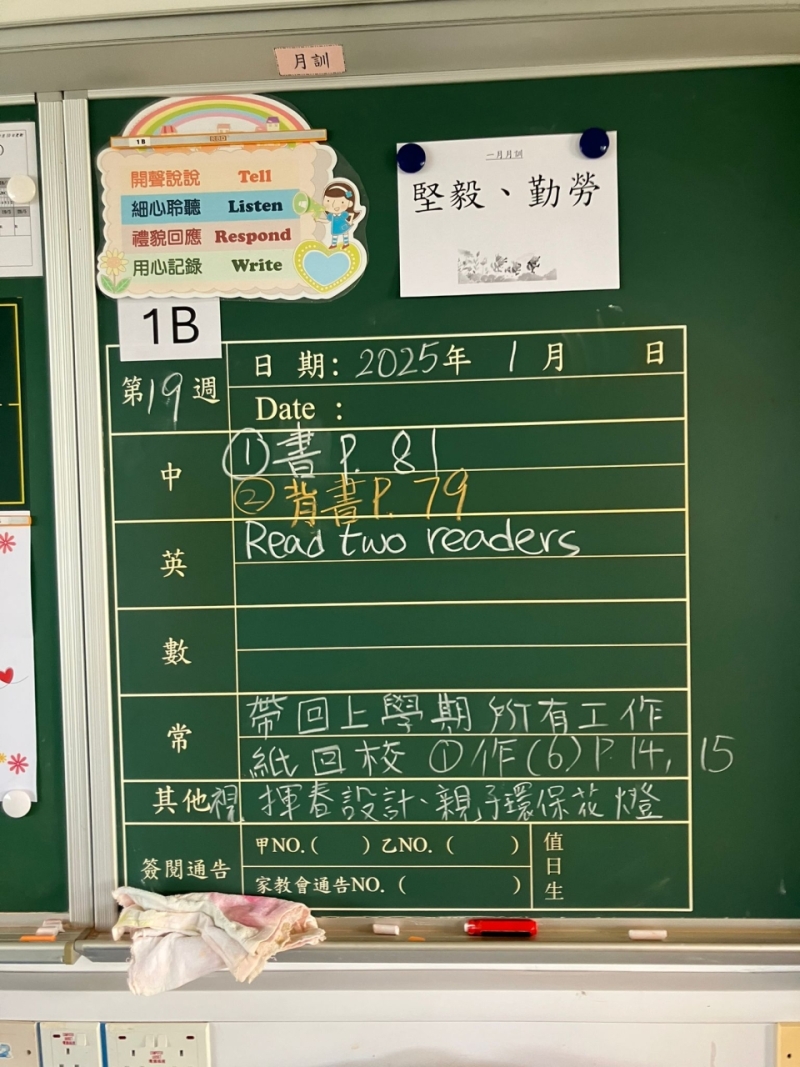 月訓
1B
開聲說說 Tell
細心聆聽 Listen
禮貌回應 Respond
用心記錄 Write
一月月訓
堅毅、勤勞
1B
第19週
日期: 2025年 1月 日
Date :
中
①書 P. 81
②背書P. 79
英
Read two readers
數
常
帶回上學期所有工作
紙回校 ①作(6) P. 14, 15
其他
視 揮春設計、親子環保花燈
簽閱通告
甲NO.( ) 乙NO. ( )
家教會通告NO. ( )
值日生